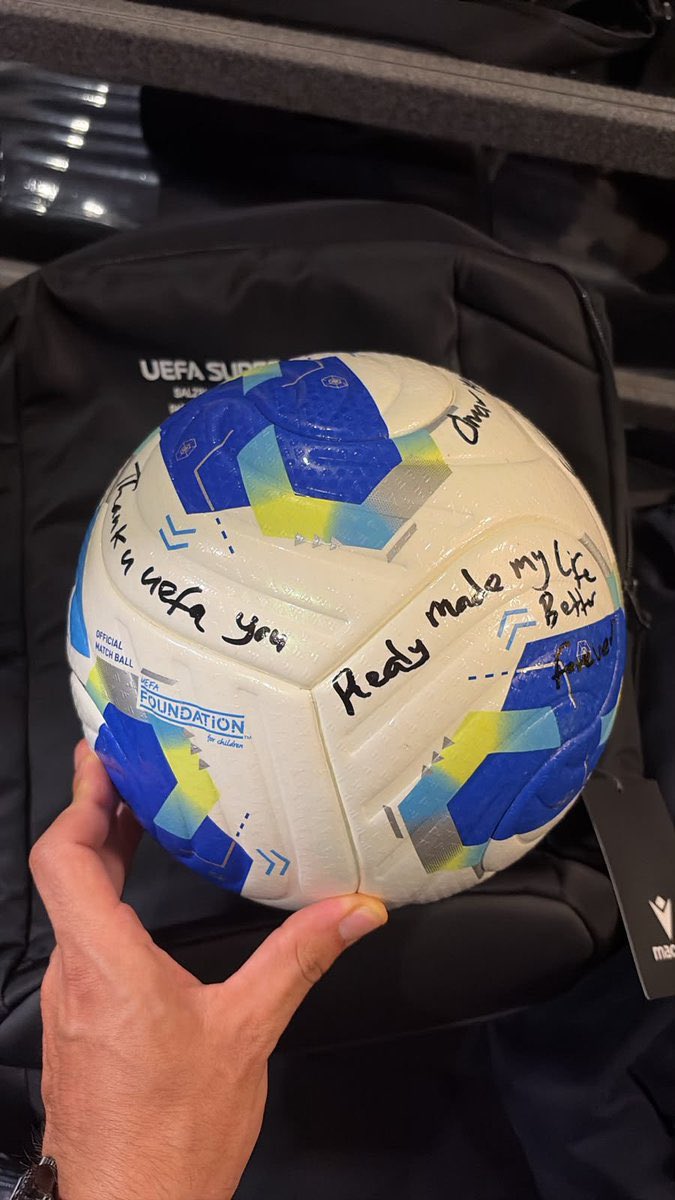 UEFA SUPE
Omar
Thank u uefa you
Really made my life
Better
forever
OFFICIAL
MATCH BALL
UEFA
FOUNDATION™
for children
mac